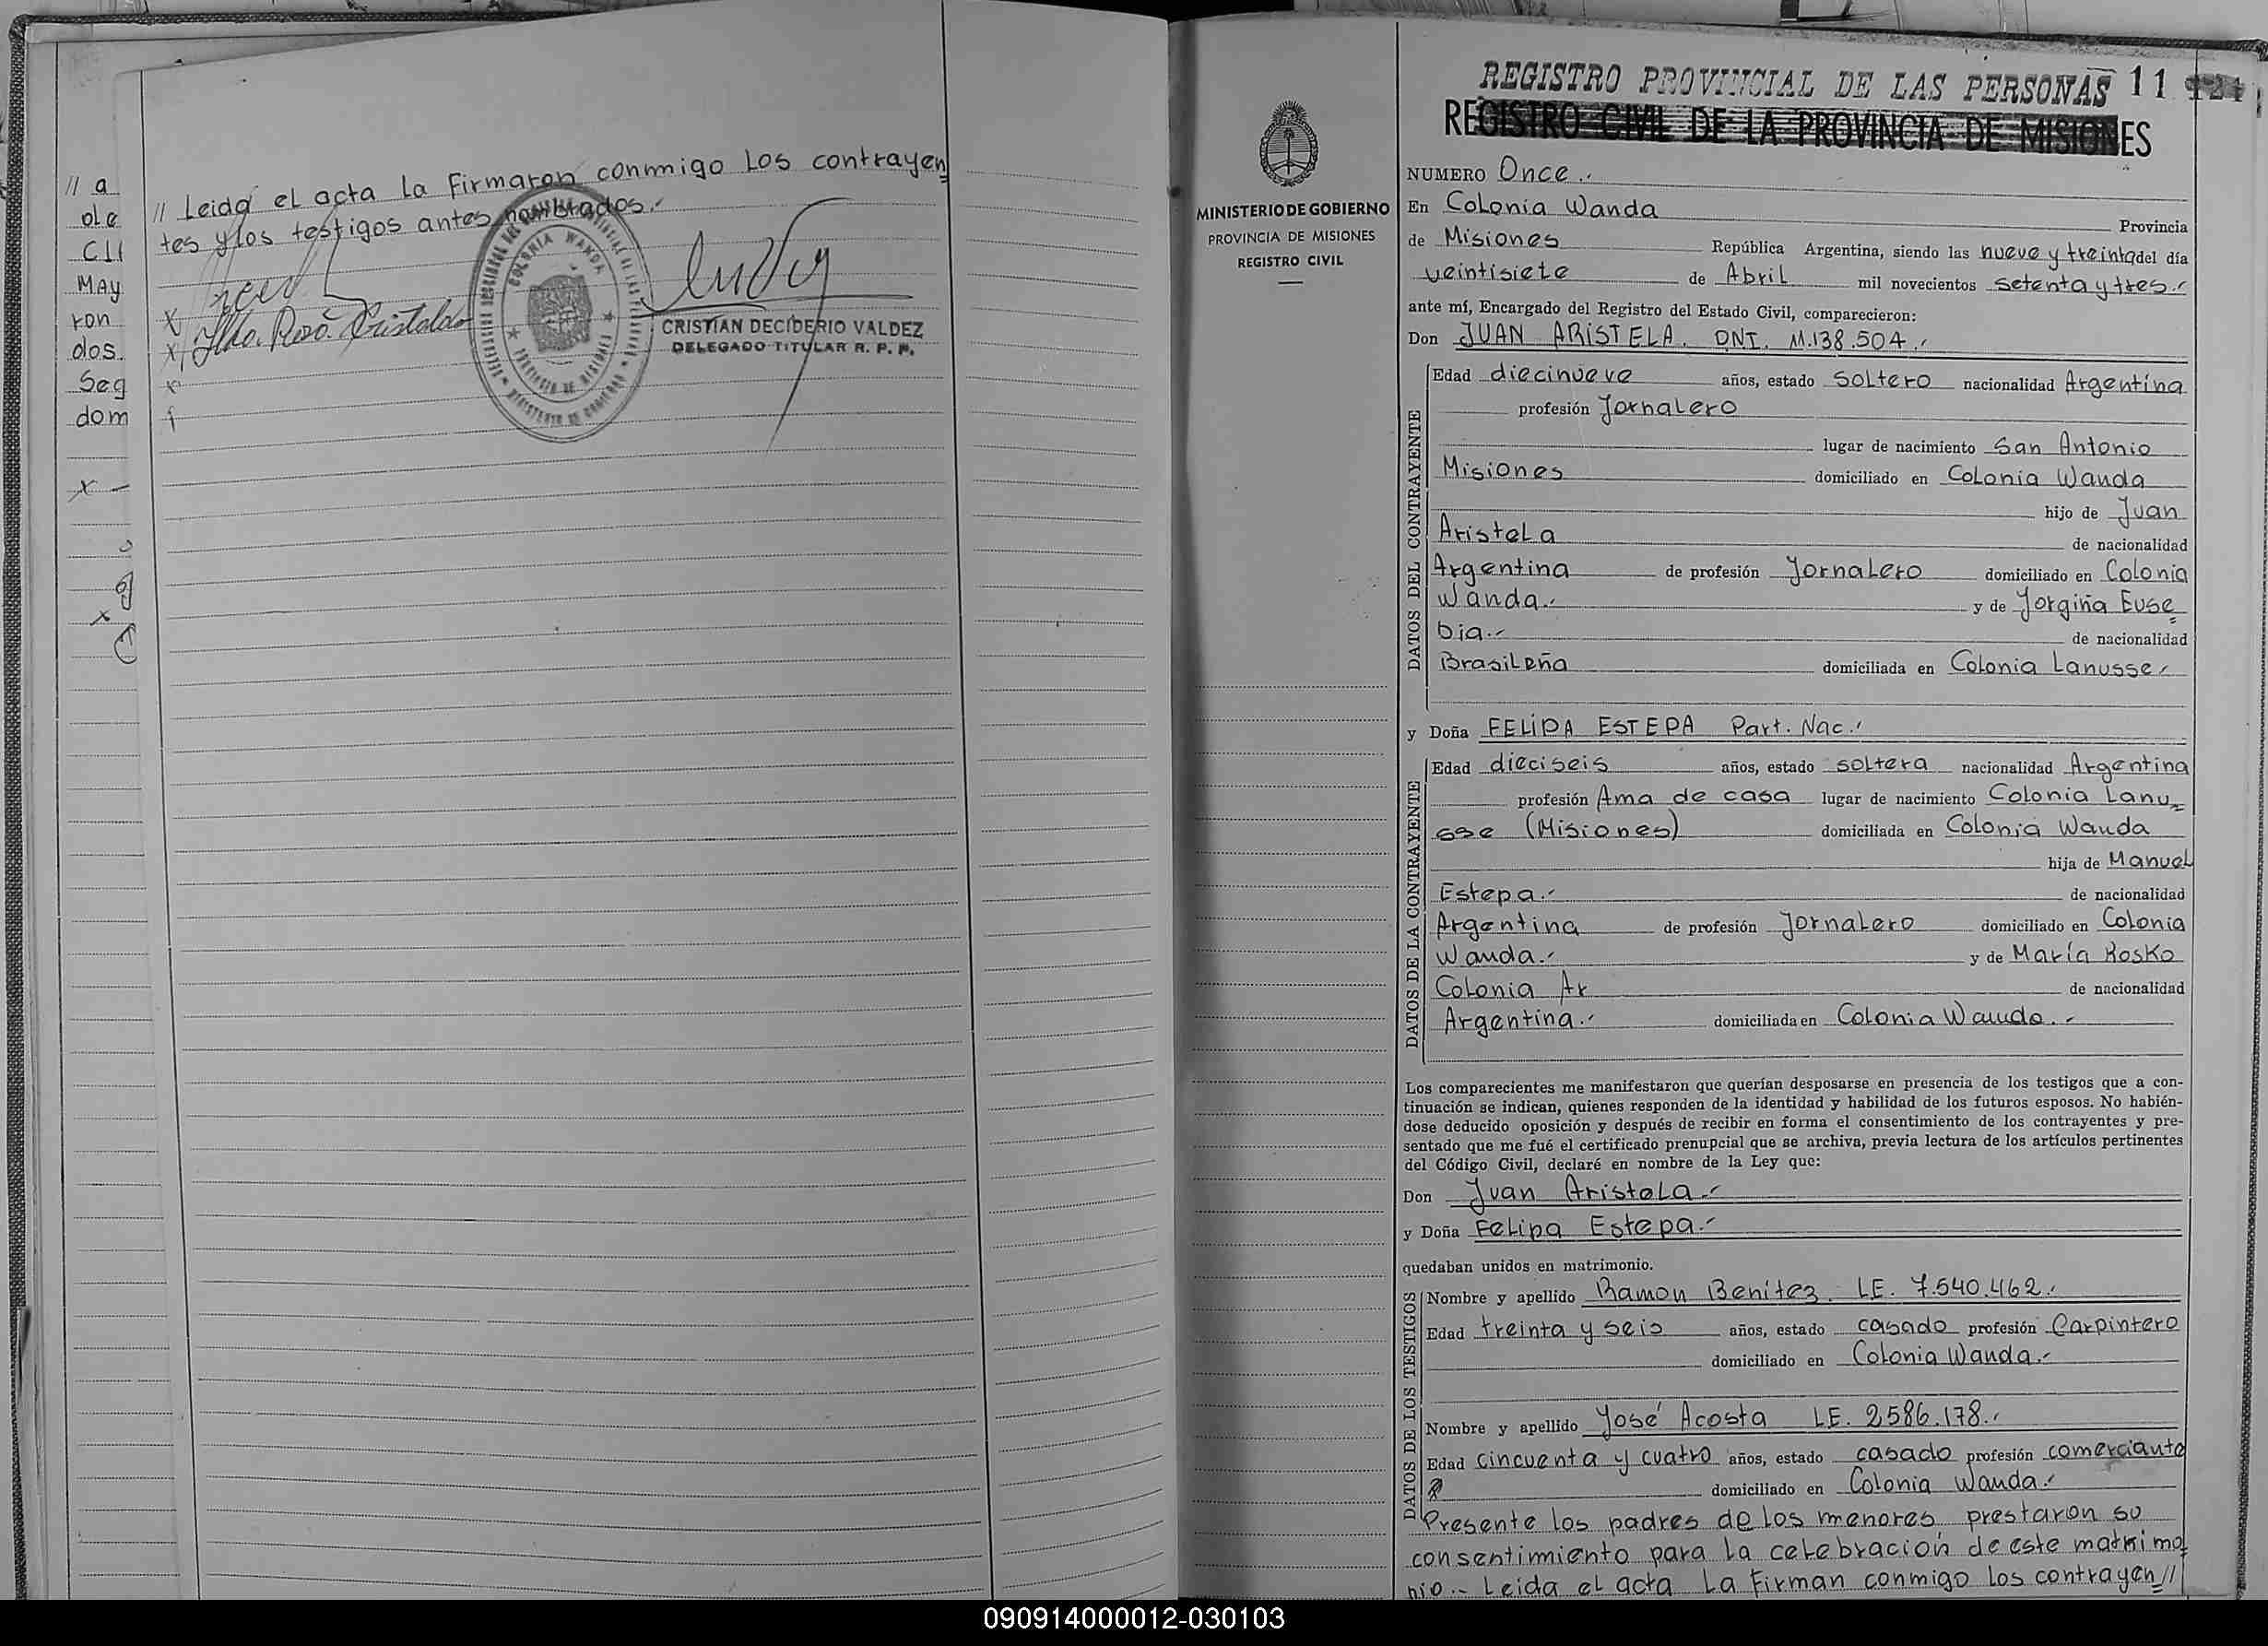 // a
de
Cll
May
ron
dos.
Seg
dom
x
// Leida el acta la Firmaron conmigo Los contrayen
tes y los testigos antes nombrados.-
x
x Ilda. Rosa. Cristaldo
x
COLONIA WANDA
PROVINCIA DE MISIONES
CRISTIAN DECIDERIO VALDEZ
DELEGADO TITULAR R. P. P.
MINISTERIO DE GOBIERNO
PROVINCIA DE MISIONES
REGISTRO CIVIL
REGISTRO PROVINCIAL DE LAS PERSONAS 11
REGISTRO CIVIL DE LA PROVINCIA DE MISIONES
NUMERO Once.-
En Colonia Wanda Provincia
de Misiones República Argentina, siendo las nueve y treinta del día
veintisiete de Abril mil novecientos setenta y tres.-
ante mí, Encargado del Registro del Estado Civil, comparecieron:
Don JUAN ARISTELA. DNI. 11.138.504.-
DATOS DEL CONTRAYENTE
Edad diecinueve años, estado soltero nacionalidad Argentina
profesión Jornalero
lugar de nacimiento San Antonio
Misiones domiciliado en Colonia Wanda
hijo de Juan
Aristela de nacionalidad
Argentina de profesión Jornalero domiciliado en Colonia
Wanda.- y de Jorgina Euse
bia.- de nacionalidad
Brasileña domiciliada en Colonia Lanusse.-
y Doña FELIPA ESTEPA Part. Nac.-
DATOS DE LA CONTRAYENTE
Edad dieciseis años, estado soltera nacionalidad Argentina
profesión Ama de casa lugar de nacimiento Colonia Lanu
sse (Misiones) domiciliada en Colonia Wanda
hija de Manuel
Estepa.- de nacionalidad
Argentina de profesión Jornalero domiciliado en Colonia
Wanda.- y de María Rosko
Colonia Ar de nacionalidad
Argentina.- domiciliada en Colonia Wanda.-
Los comparecientes me manifestaron que querían desposarse en presencia de los testigos que a con-
tinuación se indican, quienes responden de la identidad y habilidad de los futuros esposos. No habién-
dose deducido oposición y después de recibir en forma el consentimiento de los contrayentes y pre-
sentado que me fué el certificado prenupcial que se archiva, previa lectura de los artículos pertinentes
del Código Civil, declaré en nombre de la Ley que:
Don Juan Aristela.-
y Doña Felipa Estepa.-
quedaban unidos en matrimonio.
DATOS DE LOS TESTIGOS
Nombre y apellido Ramon Benitez. LE. 7.540.462.-
Edad treinta y seis años, estado casado profesión Carpintero
domiciliado en Colonia Wanda.-
Nombre y apellido José Acosta LE. 2586.178.-
Edad cincuenta y cuatro años, estado casado profesión comerciante
domiciliado en Colonia Wanda.-
Presente los padres de los menores prestaron su
consentimiento para la celebración de este matrimo
nio.- Leida el acta La Firman conmigo los contrayen//
090914000012-030103